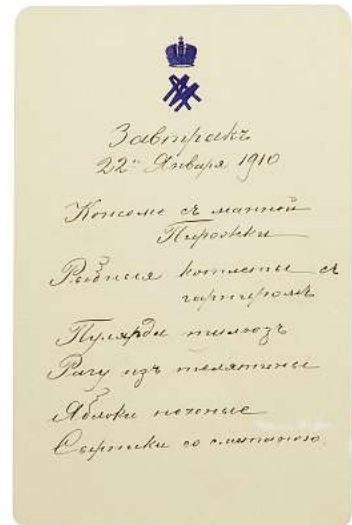 Завтракъ
22го Января 1910
Консоме съ манной
Пирожки
Рыбные котлеты съ
гарниромъ
Пулярда тилюзъ
Рагу изъ телятины
Яблоки печеные
Сырники со сметаною.